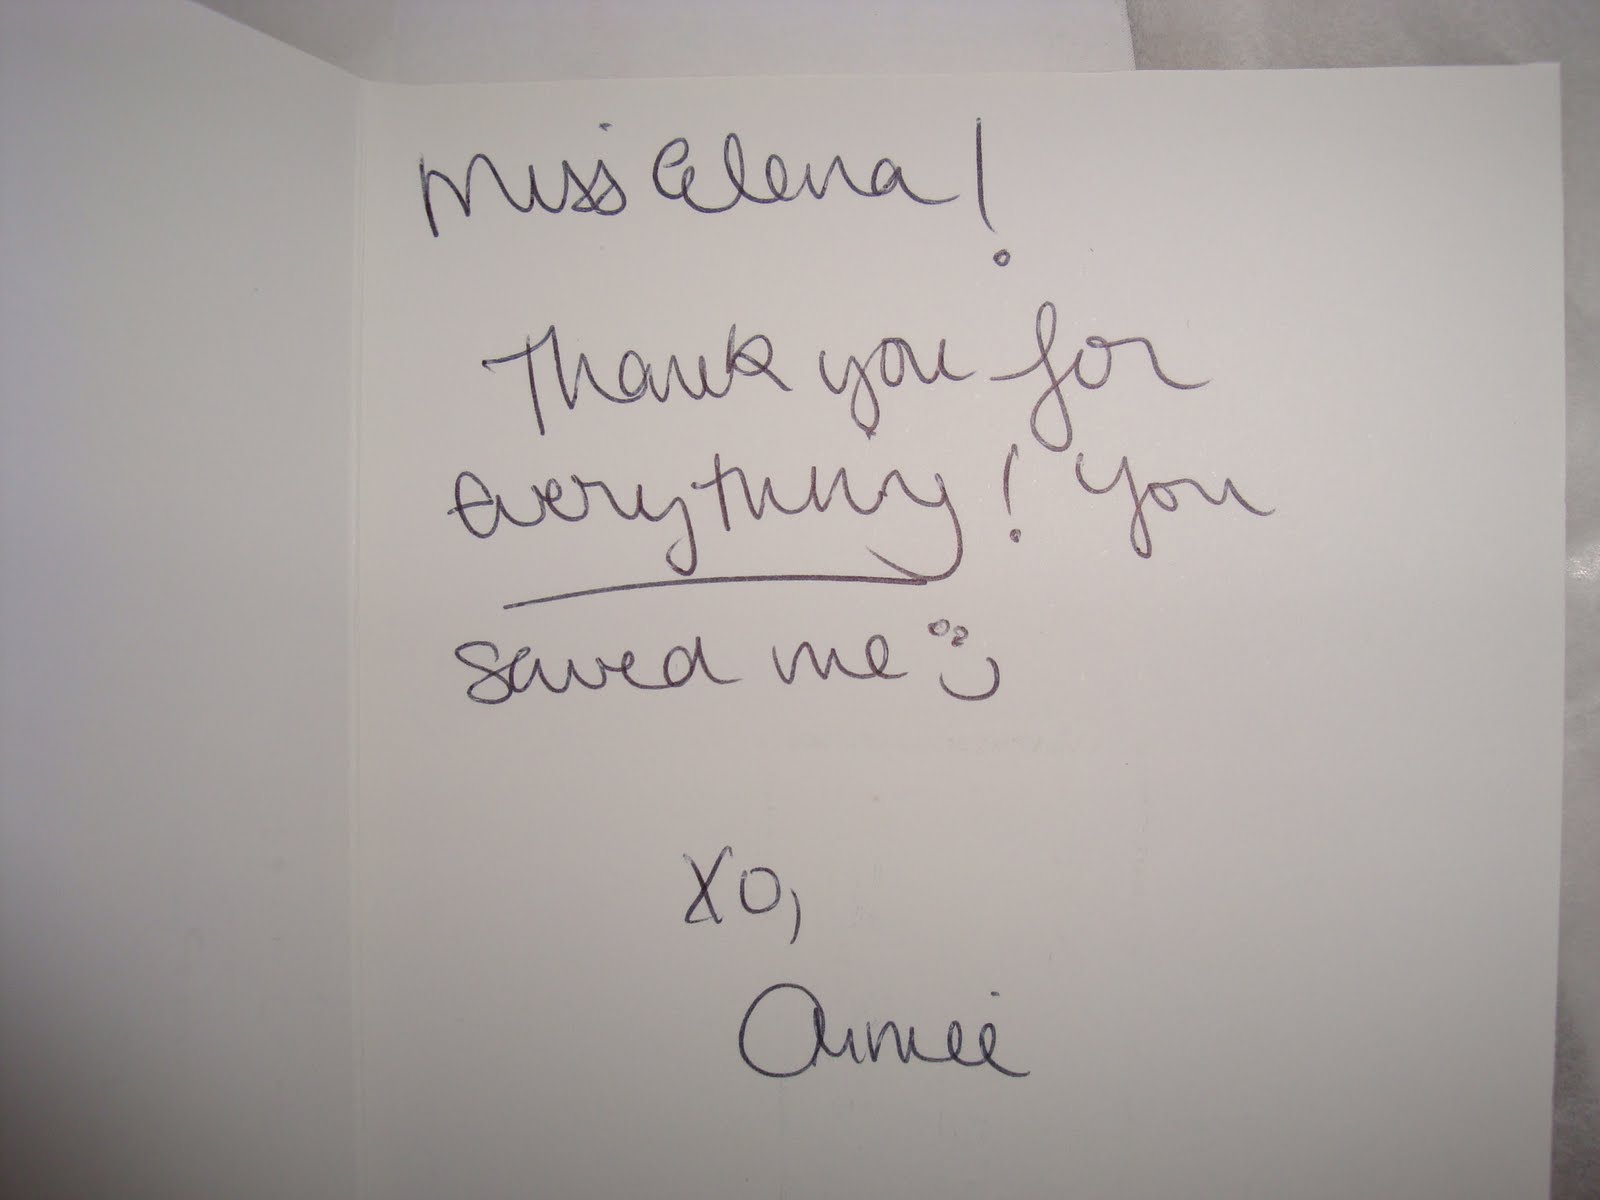 Miss Elena!
Thank you for
everything! You
saved me :)
XO,
Aimee